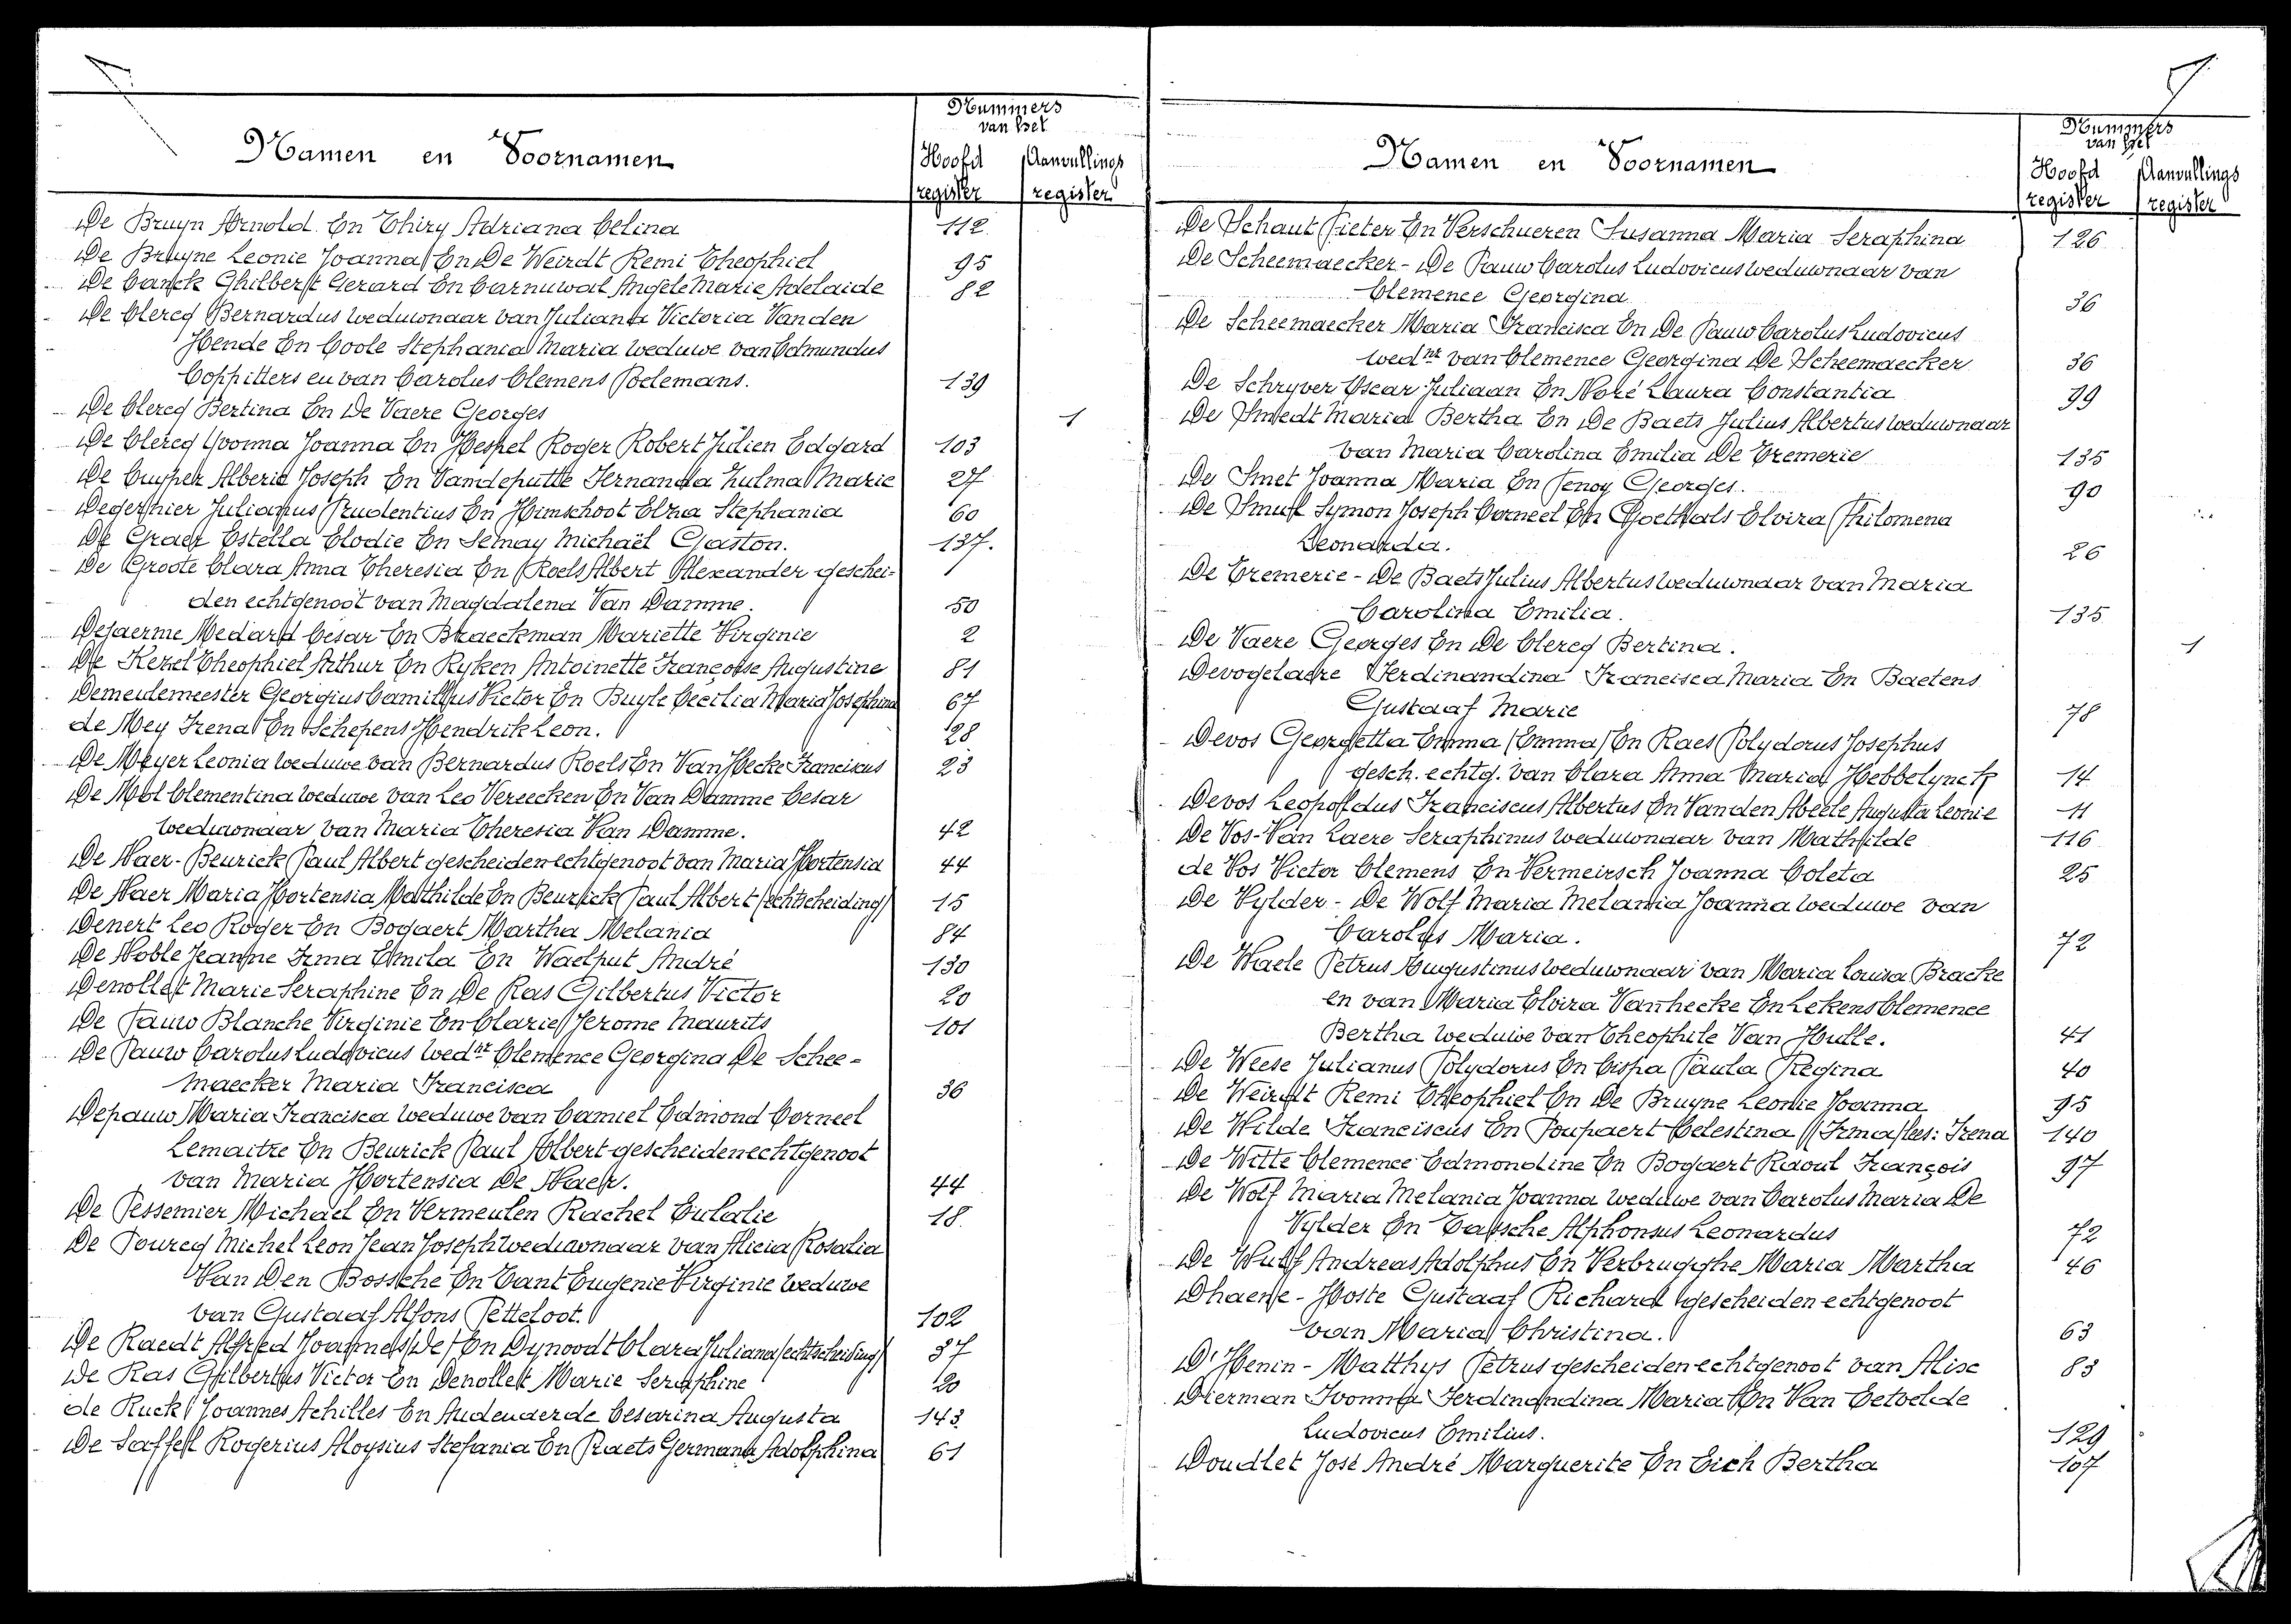 Namen en Voornamen
Nummers
van het
Hoofd register
Aanvullings register
De Bruyn Arnold En Thiry Adriana Celina 112
De Bruyne Leonie Joanna En De Weirdt Remi Theophiel 95
De Canck Ghilbert Gerard En Carnuwal Angele Marie Adelaide 82
De Clercq Bernardus weduwnaar van Juliana Victoria Van den
Hende En Coole Stephania Maria weduwe van Edmundus
Coppitters en van Carolus Clemens Poelemans. 139
De Clercq Bertina En De Vaere Georges 1
De Clercq Yvonna Joanna En Hespel Roger Robert Julien Edgard 103
De Cuyper Alberic Joseph En Vandeputte Fernanda Zulma Marie 27
Degernier Julianus Prudentius En Himschoot Elza Stephania 60
De Graer Estella Elodie En Semay Michaël Gaston. 137.
De Groote Clara Anna Theresia En Roels Albert Alexander geschei-
den echtgenoot van Magdalena Van Damme. 50
Dejaerme Medard Cesar En Braeckman Mariette Virginie 2
De Kezel Theophiel Arthur En Ryken Antoinette Françoise Augustine 81
Demeulemeester Georgius Camillus Victor En Buyle Cecilia Maria Josephina 67
de Mey Irena En Schepens Hendrik Leon. 28
De Meyer Leonia weduwe van Bernardus Roels En Van Hecke Franciscus 23
De Mol Clementina weduwe van Leo Vereecken En Van Damme Cesar
weduwnaar van Maria Theresia Van Damme. 42
De Naer-Beurick Paul Albert gescheiden echtgenoot van Maria Hortensia 44
De Naer Maria Hortensia Mathilde En Beurick Paul Albert (echtscheiding) 15
Denert Leo Roger En Bogaert Martha Melania 84
De Noble Jeanne Irma Emila En Waelput André 130
Denollet Marie Seraphine En De Ras Gilbertus Victor 20
De Pauw Blanche Virginie En Clarie Jerome Maurits 101
De Pauw Carolus Ludovicus wednr Clemence Georgina De Schee-
maecker Maria Francisca 36
Depauw Maria Francisca weduwe van Camiel Edmond Corneel
Lemaitre En Beurick Paul Albert gescheiden echtgenoot
van Maria Hortensia De Naer. 44
De Pessemier Michaël En Vermeulen Rachel Eulalie 18
De Pourcq Michel Leon Jean Joseph weduwnaar van Alicia Rosalia
Van Den Bossche En Cant Eugenie Virginie weduwe
van Gustaaf Alfons Petteloot. 102
De Raedt Alfred Joannes (De) En Dynoodt Clara Juliana (echtscheiding) 37
De Ras Gilbertus Victor En Denollet Marie Seraphine 20
de Ruck Joannes Achilles En Audenaerde Cesarina Augusta 143
De Saffel Rogerius Aloysius Stefania En Raets Germana Adolphina 61
Namen en Voornamen
Nummers
van het
Hoofd register
Aanvullings register
De Schaut Pieter En Verschueren Susanna Maria Seraphina 126
De Scheemaecker - De Pauw Carolus Ludovicus weduwnaar van
Clemence Georgina 36
De Scheemaecker Maria Francisca En De Pauw Carolus Ludovicus
wednr van Clemence Georgina De Scheemaecker 36
De Schryver Oscar Juliaan En Noré Laura Constantia 99
De Smedt Maria Bertha En De Baets Julius Albertus weduwnaar
van Maria Carolina Emilia De Cremerie 135
De Smet Joanna Maria En Jenoy Georges. 90
De Smul Symon Joseph Corneel En Goethals Elvira Philomena
Leonarda. 26
De Cremerie - De Baets Julius Albertus weduwnaar van Maria
Carolina Emilia. 135
De Vaere Georges En De Clercq Bertina. 1
Devogelaere Ferdinandina Francisca Maria En Baetens
Gustaaf Marie 78
Devos Georgetta Emma (Emma) En Raes Polydorus Josephus
gesch. echtg. van Clara Anna Maria Hebbelynck 14
Devos Leopoldus Franciscus Albertus En Van den Abeele Augusta Leonie 11
De Vos-Van Laere Seraphinus weduwnaar van Mathilde 116
de Vos Victor Clemens En Vermeirsch Joanna Coleta 25
De Vylder - De Wolf Maria Melania Joanna weduwe van
Carolus Maria. 72
De Waele Petrus Augustinus weduwnaar van Maria Louisa Bracke
en van Maria Elvira Vanhecke En Lekens Clemence
Bertha weduwe van Theophile Van Hulle. 41
De Weese Julianus Polydorus En Cispa Paula Regina 40
De Weirdt Remi Theophiel En De Bruyne Leonie Joanna 95
De Wilde Franciscus En Poupaert Celestina (Irma) lees: Irena 140
De Witte Clemence Edmondine En Bogaert Raoul François 97
De Wolf Maria Melania Joanna weduwe van Carolus Maria De
Vylder En Calsche Alphonsus Leonardus 72
De Wulf Andreas Adolphus En Verbrugghe Maria Martha 46
Dhaene-Hoste Gustaaf Richard gescheiden echtgenoot
van Maria Christina. 63
D'Henin - Matthys Petrus gescheiden echtgenoot van Alise 83
Dierman Ivonna Ferdinandina Maria En Van Eetvelde
Ludovicus Emilius. 129
Doudlet José André Marguerite En Eich Bertha 107